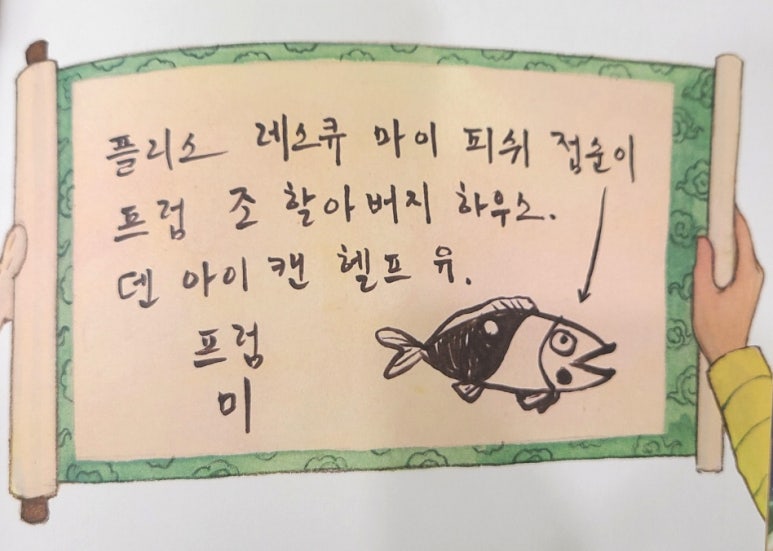 플리스 레스큐 마이 피쉬 접순이
프럼 조 할아버지 하우스.
덴 아이 캔 헬프 유.
프럼
미